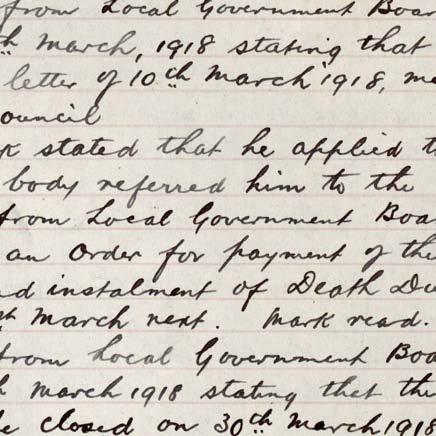 from Local Government Boar
th March, 1918 stating that
letter of 10th March 1918, me
ouncil
rk stated that he applied t
body referred him to the
from Local Government Boa
an Order for payment of the
nd instalment of Death Du
st March next. Mark read.
from Local Government Boa
h March 1918 stating that the
e closed on 30th March 1918